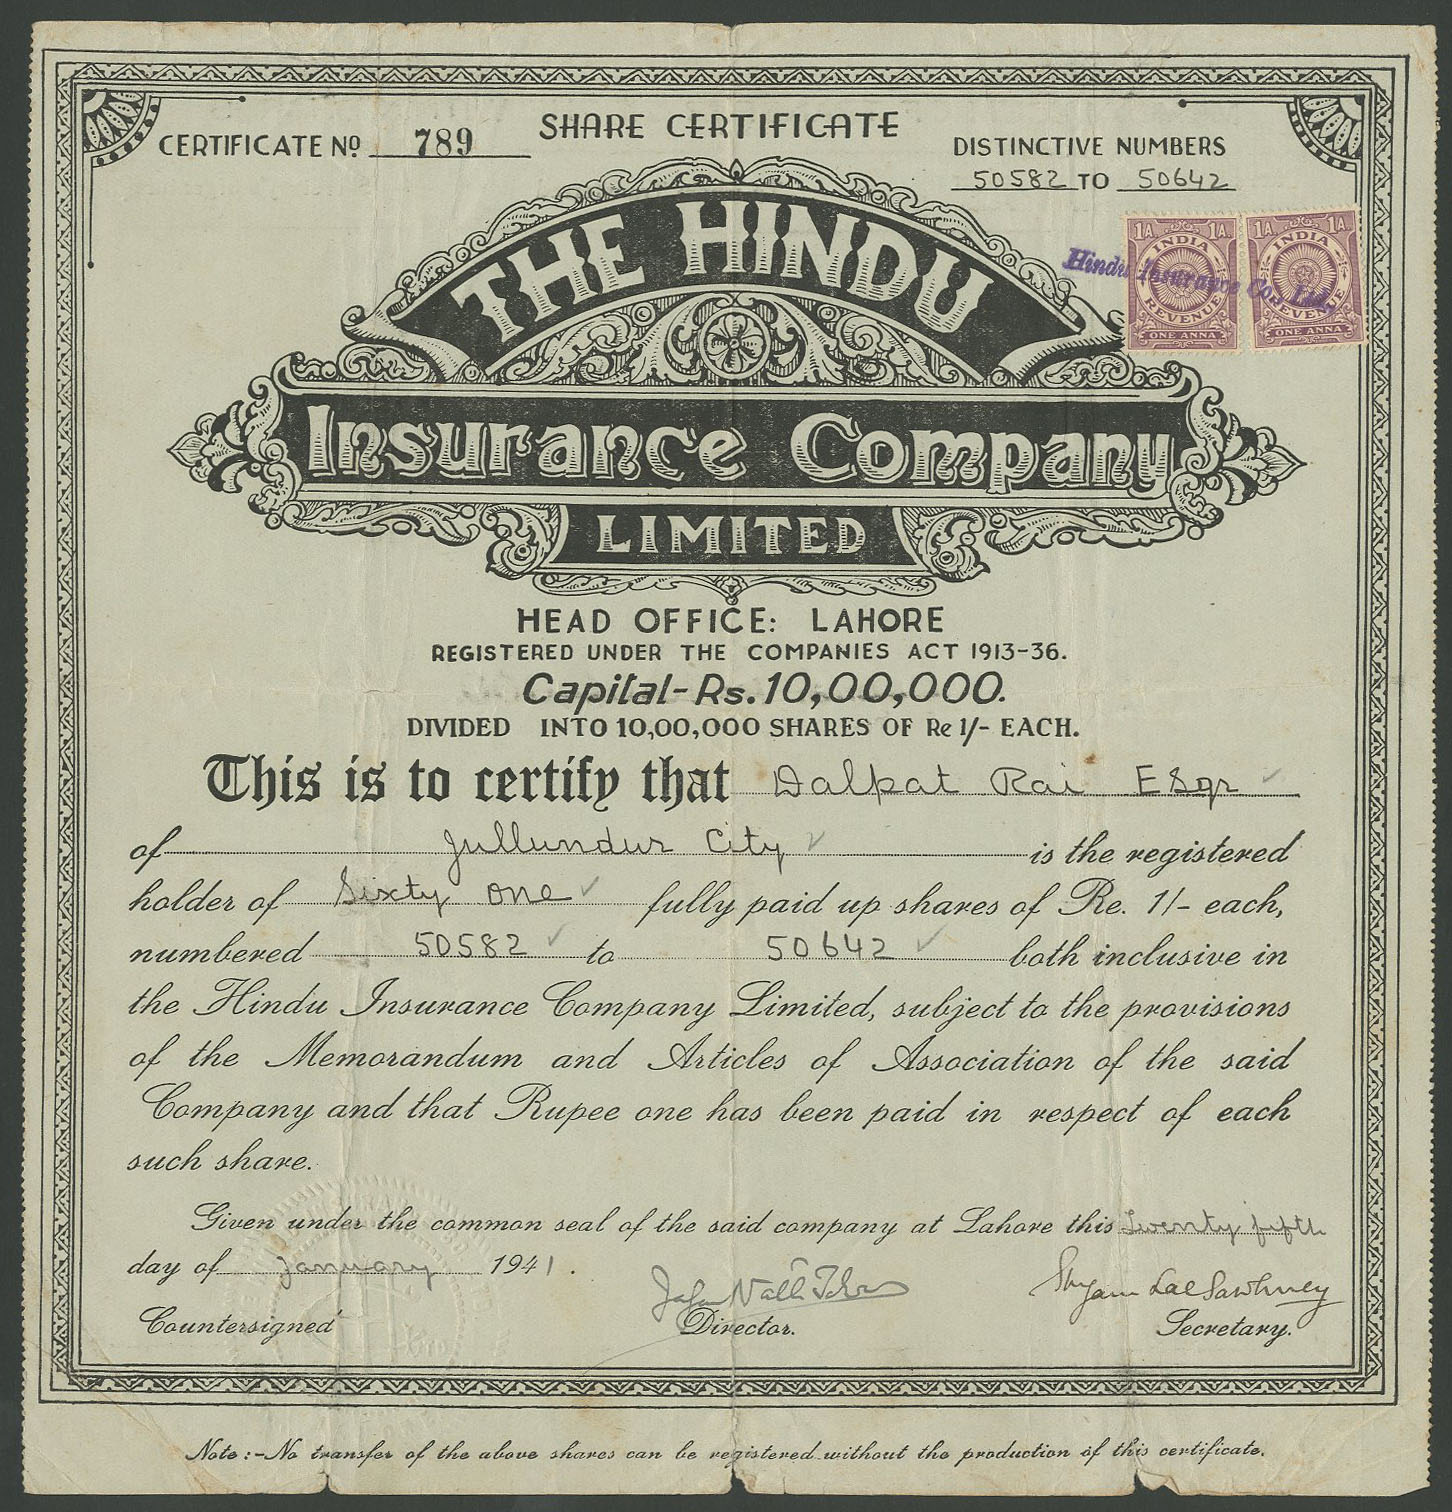 SHARE CERTIFICATE
CERTIFICATE No 789
DISTINCTIVE NUMBERS
50582 TO 50642
1A 1A. 1A 1A
INDIA INDIA
REVENUE REVENUE
ONE ANNA ONE ANNA
Hindu Insurance Co., Ltd.
THE HINDU
Insurance Company
LIMITED
HEAD OFFICE: LAHORE
REGISTERED UNDER THE COMPANIES ACT 1913-36.
Capital-Rs. 10,00,000.
DIVIDED INTO 10,00,000 SHARES OF Re 1/- EACH.
This is to certify that Dalpat Rai Esqr
of Jullundur City is the registered
holder of Sixty one fully paid up shares of Re. 1/- each,
numbered 50582 to 50642 both inclusive in
the Hindu Insurance Company Limited, subject to the provisions
of the Memorandum and Articles of Association of the said
Company and that Rupee one has been paid in respect of each
such share.
Given under the common seal of the said company at Lahore this Twenty fifth
day of January 1941.
Shyam Lal Sawhney
Countersigned Director. Secretary.
Note:-No transfer of the above shares can be registered without the production of this certificate.